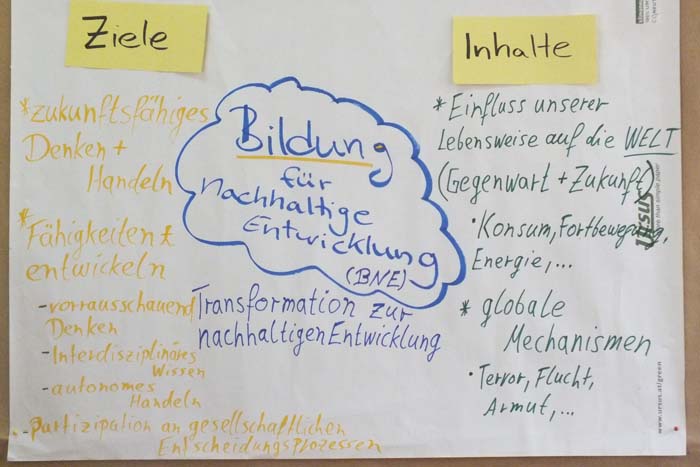 Ziele
*zukunftsfähiges
Denken +
Handeln
*Fähigkeiten
entwickeln
-vorrausschauend
Denken
-Interdisziplinäres
Wissen
-autonomes
Handeln
-Partizipation an gesellschaftlichen
Entscheidungsprozessen
Bildung
für
nachhaltige
Entwicklung
(BNE)
Transformation zur
nachhaltigen Entwicklung
Inhalte
* Einfluss unserer
Lebensweise auf die WELT
(Gegenwart + Zukunft)
· Konsum, Fortbewegung,
Energie,...
* globale
Mechanismen
· Terror, Flucht,
Armut,...
ursus
more than simple paper
www.ursus.at/green